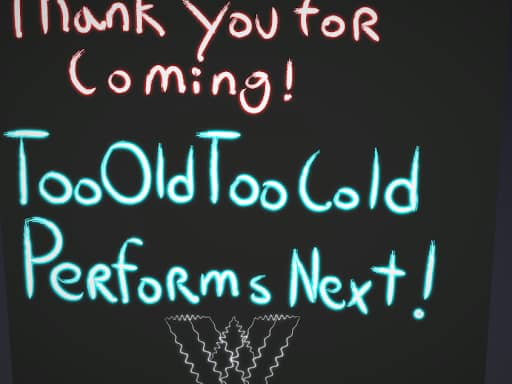 Thank You for
Coming!
TooOldTooCold
Performs Next!